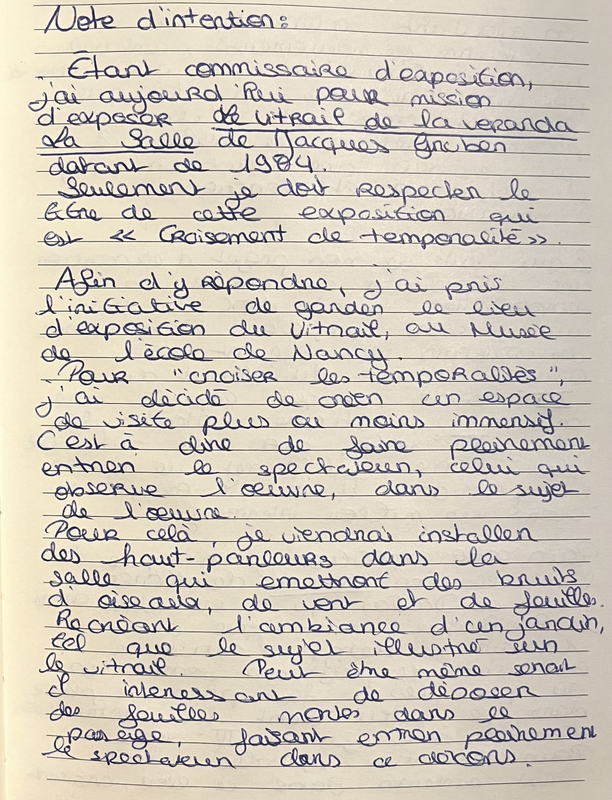 Note d'intention :
. Étant commissaire d'exaposition,
j'ai aujourd'hui pour mission
d'exposer le vitrail de la veranda
La Salle de Jacques Gruber
datant de 1904.
Seulement je doit respecter le
titre de cette exaposition qui
est « Croisement de temporalité ».
Afin d'y répondre, j'ai pris
l'initiative de garder le lieu
d'exaposition du vitrail, au Musée
de l'école de Nancy.
. Pour "croiser les temporalités",
j'ai décidé de créer un espace
de visite plus ou moins immersif.
C'est à dire de faire pleinement
entrer le spectateur, celui qui
observe l'oeuvre, dans le sujet
de l'oeuvre.
Pour celà, je viendrai installer
des haut-parleurs dans la
salle qui emettront des bruits
d'oiseaux, de vent et de feuilles.
Recréant l'ambiance d'un jardin,
tel que le sujet illustré sur
le vitrail. Peut être même serait
il interessant de déposer
des feuilles mortes dans le
passage, faisant entrer pleinement
le spectateur dans ce décors.